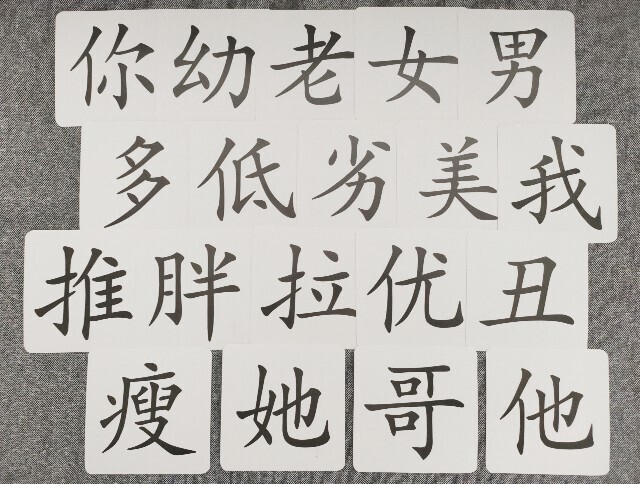 你幼老女男
多低劣美我
推胖拉优丑
瘦她哥他